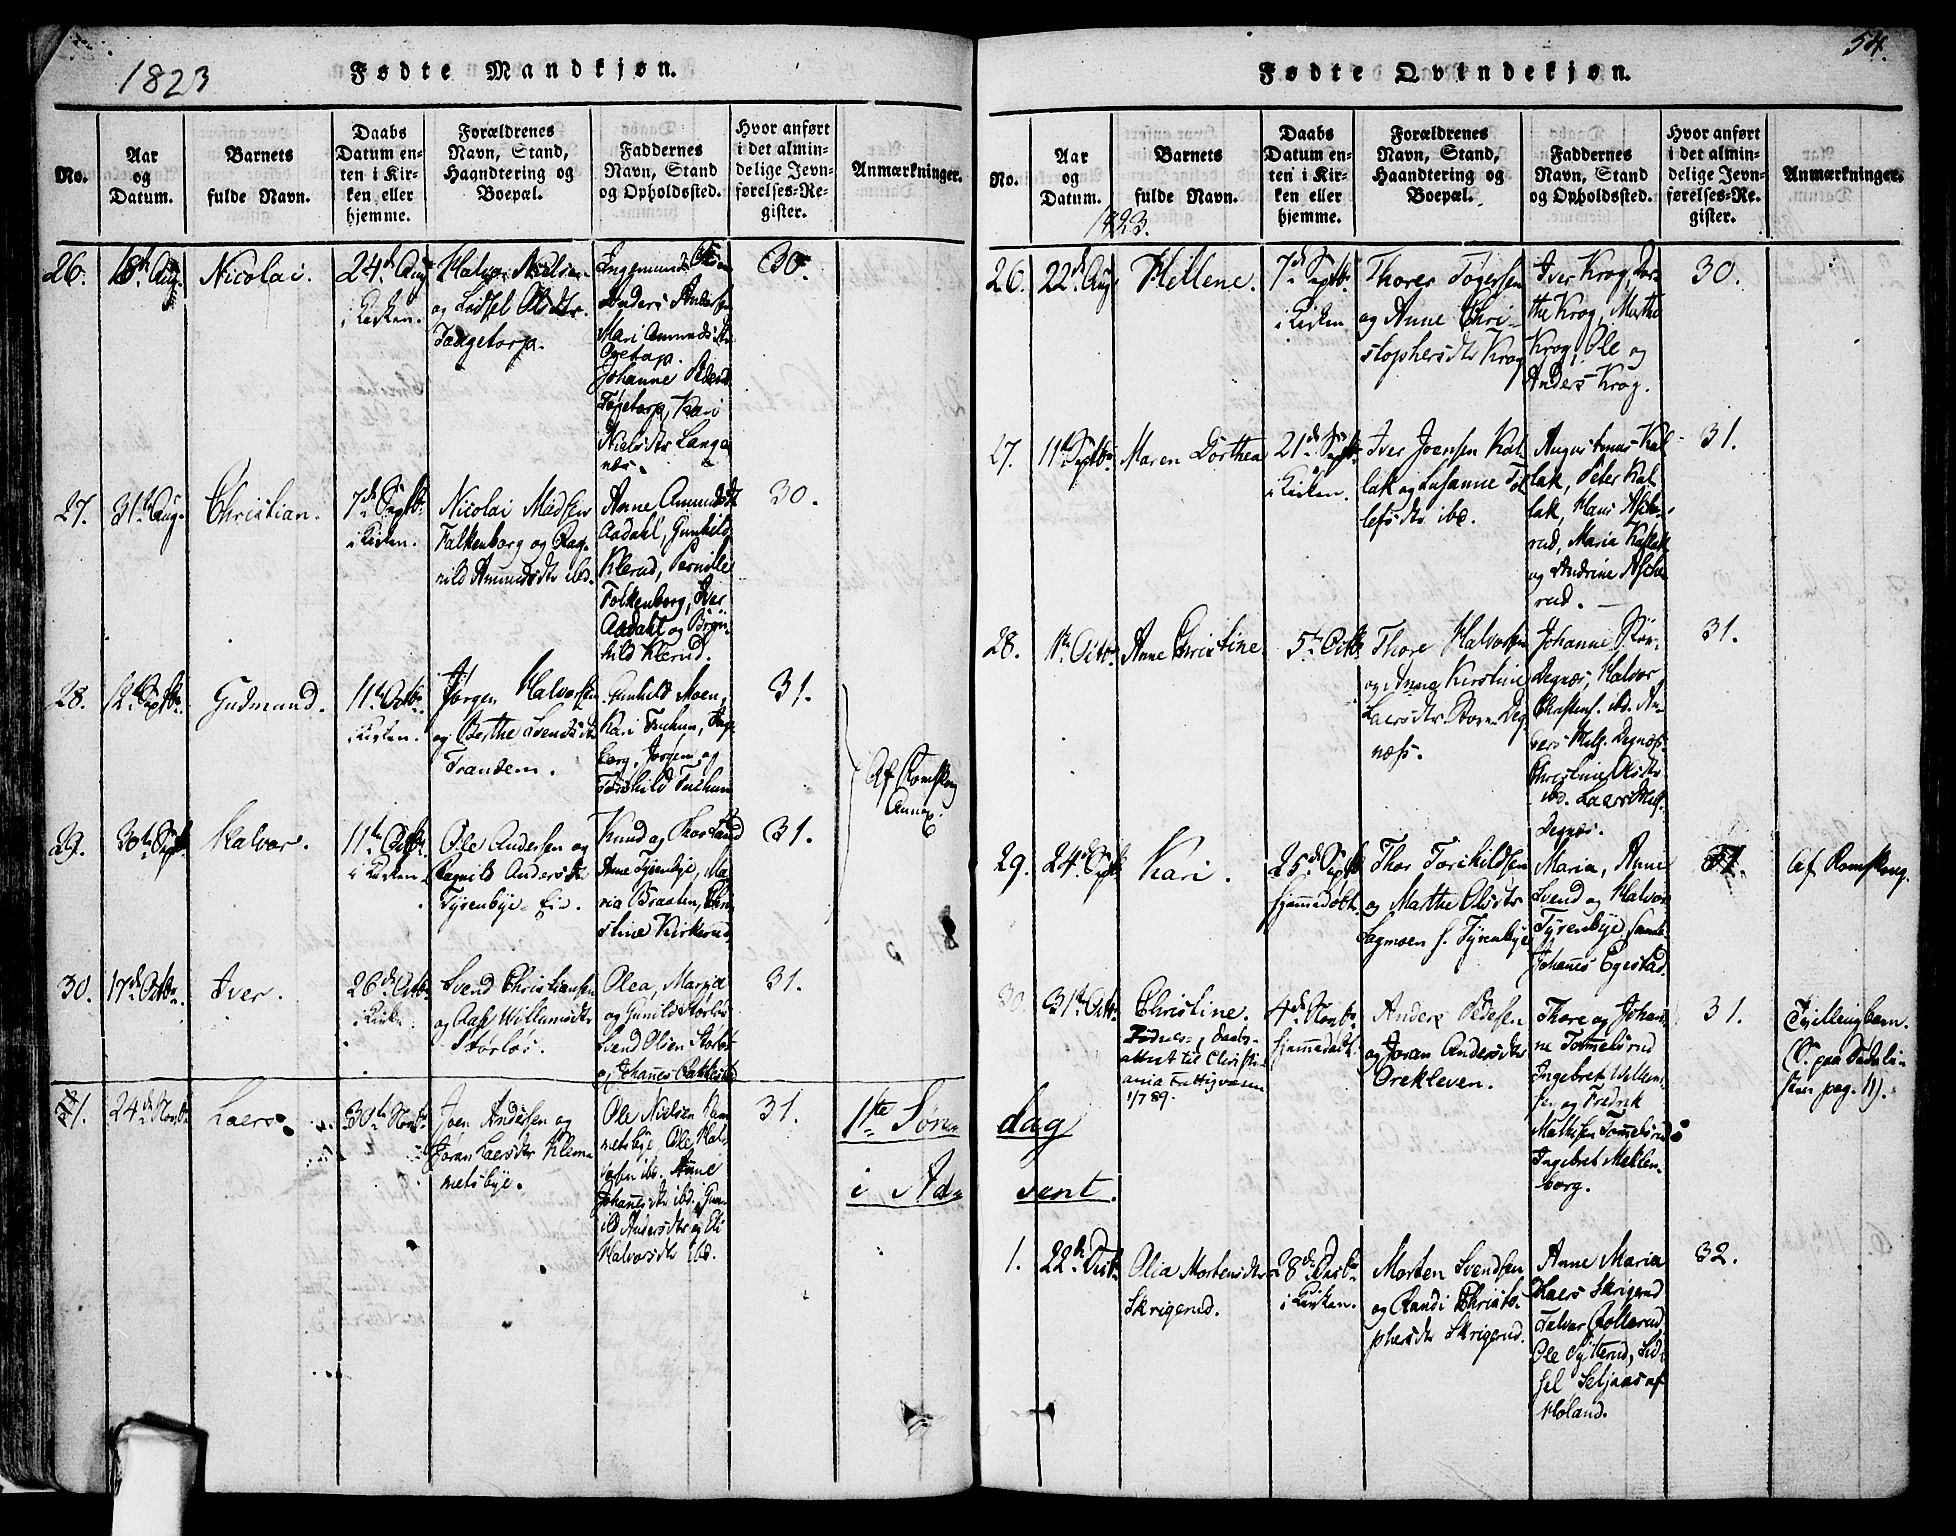 1823
Fødte Mandkjøn.
No.
Aar
og
Datum.
Barnets
fulde Navn.
Daabs
Datum en-
ten i Kir-
ken eller
hjemme.
Forældrenes
Navn, Stand,
Haandtering og
Boepæl.
Faddernes
Navn, Stand
og Opholdssted.
Hvor anført
i det almin-
delige Jevn-
førelses-Re-
gister.
Anmærkninger.
26.
18de Aug.
Nicolai.
24de Aug
i Kirken.
Halvor Nielsen
og Olsdtr.
Anders Andersen
Mari Amundsdtr
Johanne
Kari
Nielsdtr Lange
næs.
30.
27.
31te Aug.
Christian.
7de Septbr.
i Kirken.
Nicolai Madsen
Falkenborg og Rag-
nild Amundsdtr ibd.
Anne Amundsdtr
Aadahl, Gunhild
Klerud, Pernille
Falkenborg, Iver
Aadahl og Brÿn-
hild Klerud.
30.
28.
12te Septbr.
Gudmund.
11te Octbr.
i Kirken.
Jørgen Halvorsen
og Berthe Svendsdtr
Trandem.
Gunhild Moen,
Kari
borg, Jørgen og
31.
Af Romskog
Annex.
29.
30te Septbr.
Halvor.
11te Octbr.
i Kirken.
Ole Andersen og
Ragnild Andersdtr
Tyrenbye Eie.
Knud og
Anne Tyrenbye, Ma-
ria Braaten, Chri-
stine Kirkerud.
31.
30.
17de Octbr.
Iver.
26de Octbr.
i Kirken.
Svend Christiansen
og Aase Willumsdtr
Størløs.
Olea, Maria
og Gunild Størløs
Svend Olsen Størløs
og Johannes
31.
31.
24de Novbr.
Laers.
30te Novbr.
Joen Andersen og
Joran Laersdtr Klem
metsbye.
Ole Nielsen Klem
metsbye, Ole Hal-
vorsen ibd. Anne
Johannesdtr ibd. Gun-
ild Andersdtr og Eli
Halvorsdtr ibd.
31.
1te Søn-
i Ad-
54.
Fødte Qvindekjøn.
No.
Aar
og
Datum.
1823.
Barnets
fulde Navn.
Daabs
Datum en-
ten i Kir-
ken eller
hjemme.
Forældrenes
Navn, Stand,
Haandtering og
Boepæl.
Faddernes
Navn, Stand
og Opholdssted.
Hvor anført
i det almin-
delige Jevn-
førelses-Re-
gister.
Anmærkninger.
26.
22de Aug
Hellene.
7de Septbr.
i Kirken
Thorer Tøgersen
og Anne Chri-
stophersdtr Krog
Iver Krog, Dor-
the Krog, Marthe
Krog, Ole og
Anders Krog.
30.
27.
11te Septbr.
Maren Dorthea
21de Septbr.
i Kirken.
Iver Joensen Kal
lak og Susanne Tol
lefsdtr ibd.
Kal
lak, Peter Kal
lak, Hans Aske-
rud, Maria Kallak
og Andrine Aske
rud.
31.
28.
1te Octbr.
Anne Christine
5te Octbr.
Thore Halvorsen
og Anne Kirstine
Laersdtr Store Deg
næss.
Johanne Stor-
Degnæs, Halvor
Christens. ibd. An-
ders Mels. Degnæss.
Christine Olsdtr
ibd. Laers
Degnæs.
31.
29.
24de Septbr
Kari.
25de Septbr
hjemmedøbt.
Thor Torkildsen
og Marthe Olsdtr
Sagmoen Tyrenbye
Maria, Anne
Svend og Halvor
Tyrenbye, samt
Johannes Egestad.
31.
Af Romskog.
30.
31te Octbr.
Christine.
Fødsels-, Daabs-
attest til Christi-
ania Fattigvæsen
1/7 89.
4de Novbr.
hjemmedøbt.
Anders Pedersen
og Joran Andersdtr
Orekleven.
Thore og Johan-
ne Tommelsrud
Ingebret Willum
sen og Fredrik
Mathisen Tommelsrud
Ingebret Meklen-
borg.
31.
Tvillingbarn.
pag. 11).
dag
vent.
1.
22de
Olia Mortensdtr
Skrigerud.
28de
i Kirken.
Morten Svendsen
og Randi Christo-
phersdtr Skrigerud.
Anne Maria
Skrigerud
Ole Sytterud, Sid-
sel af
Høland.
32.